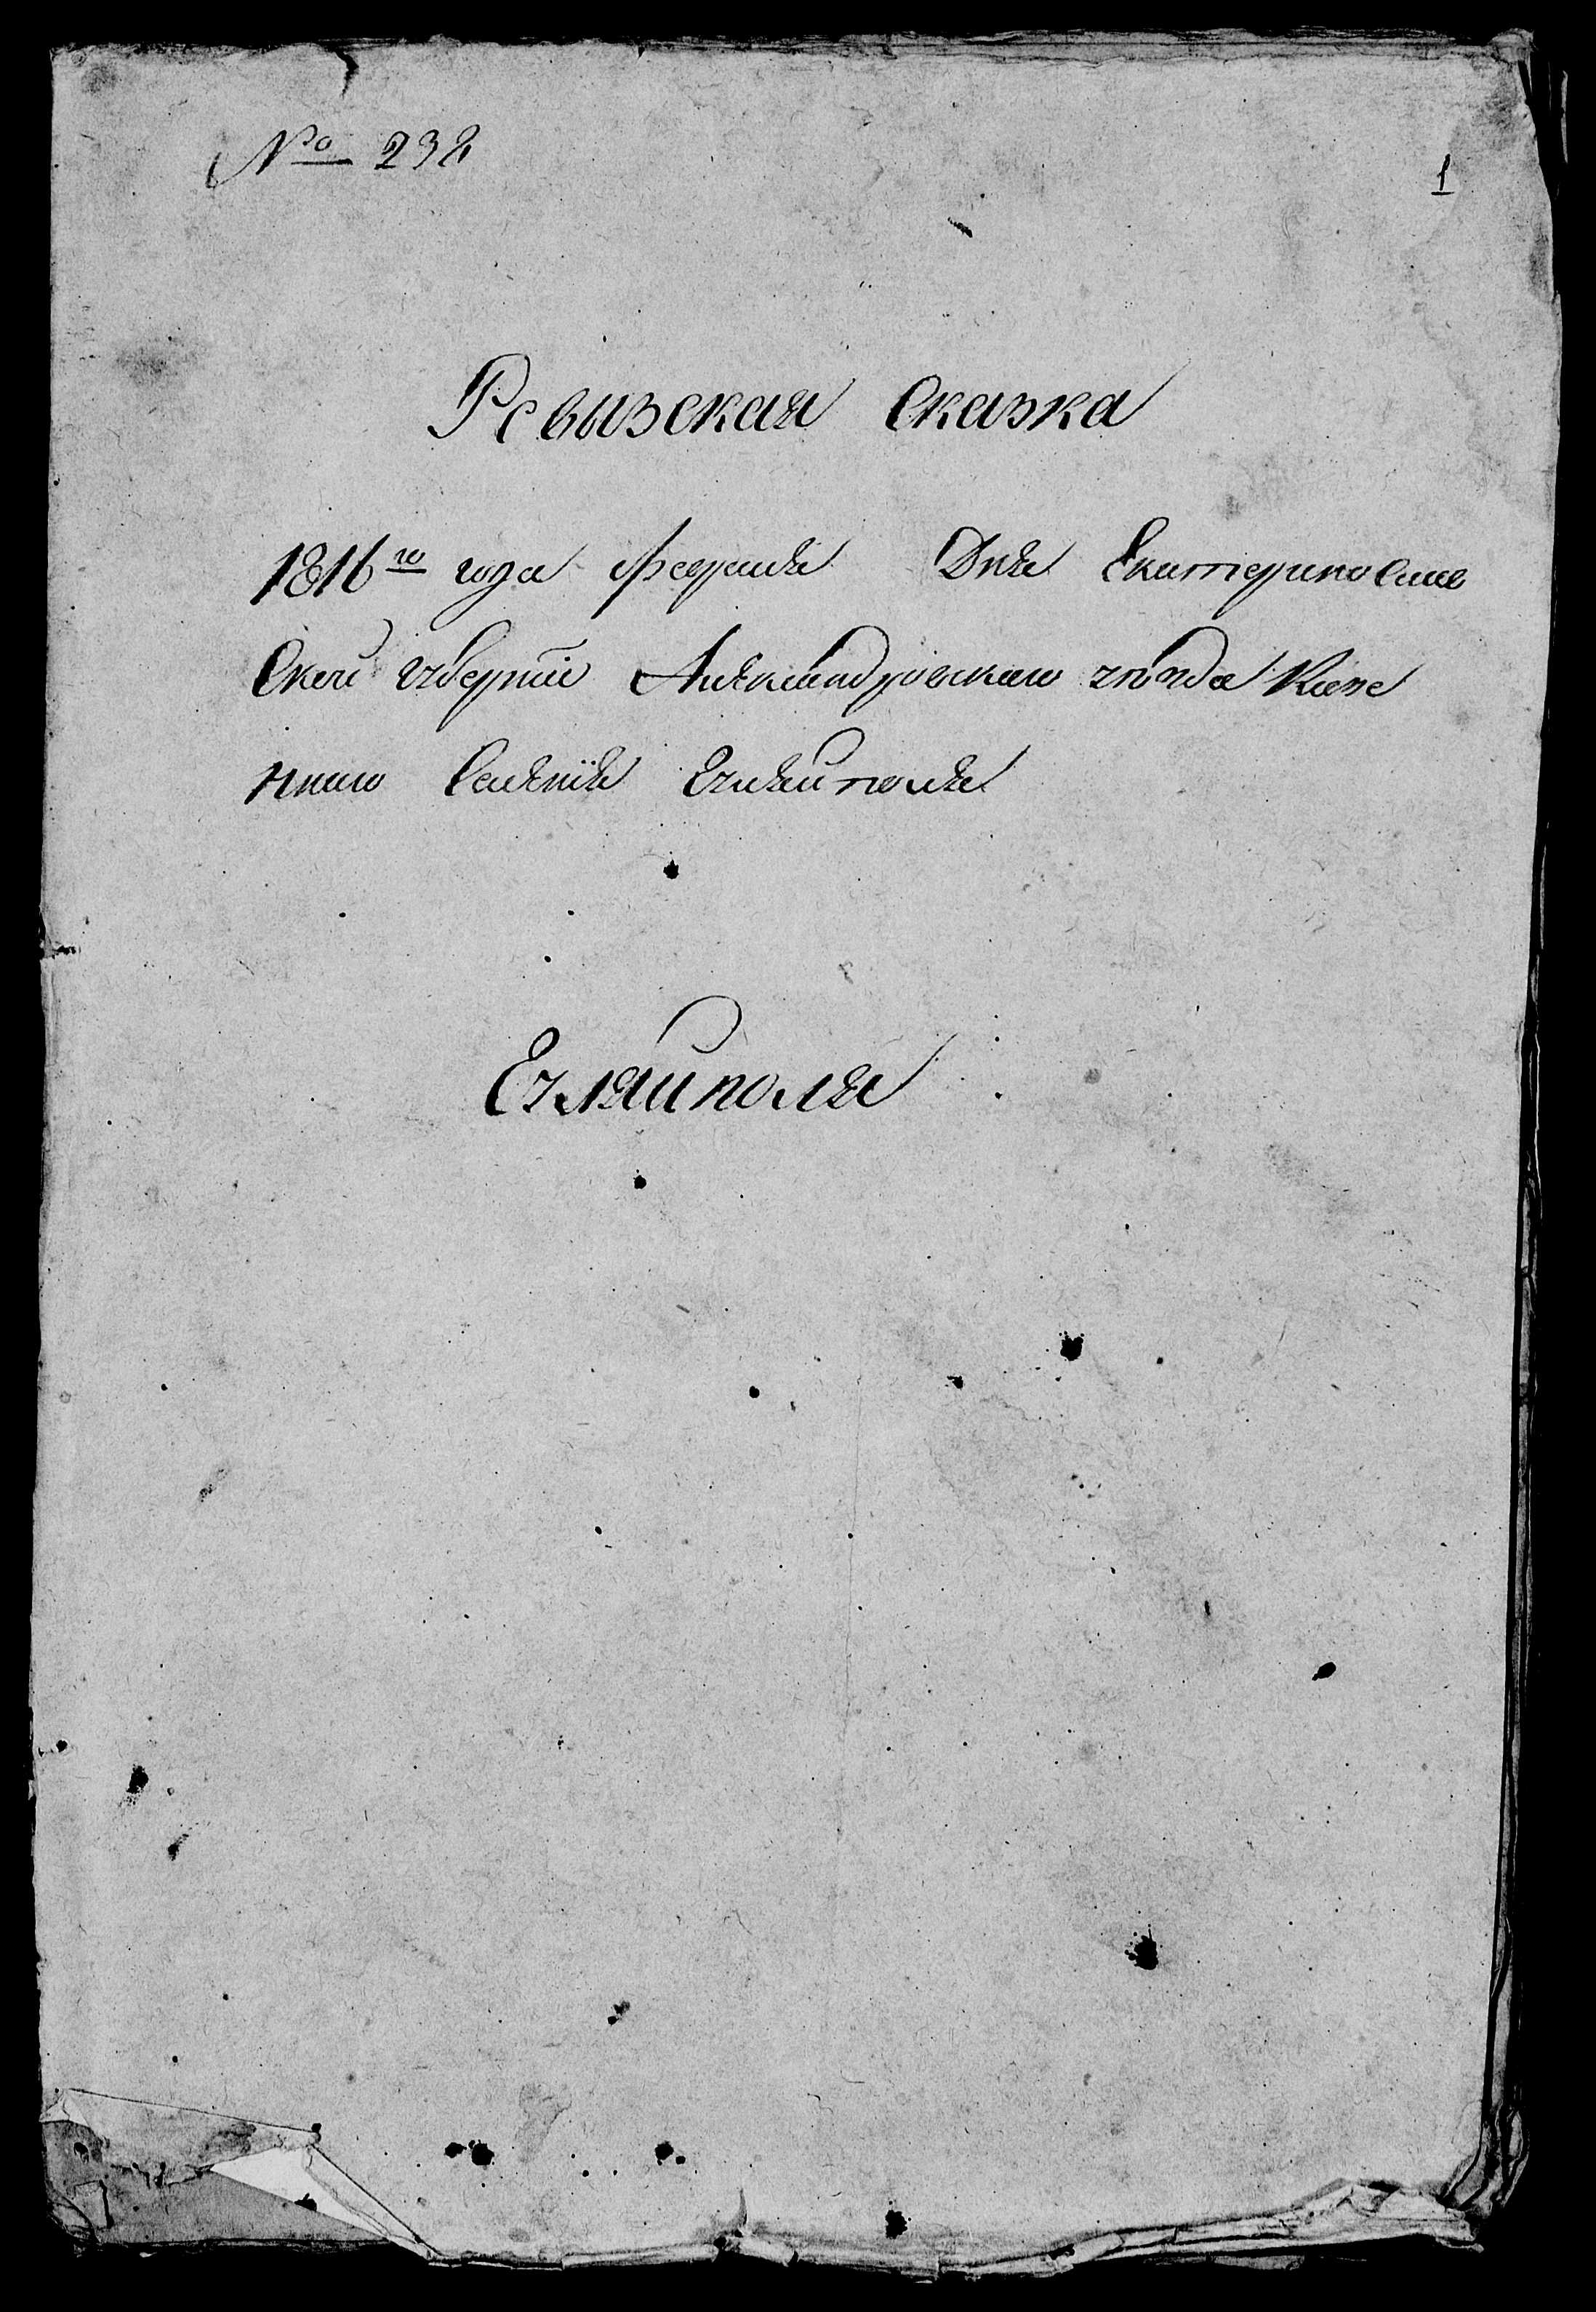 № 238
1
Ревызская Сказка
1816го года февраля Дня Екатеринослав
Ской губернии Александровскаго уезда Казе
ннаго Селения Егуляйполя
Егуляйполя